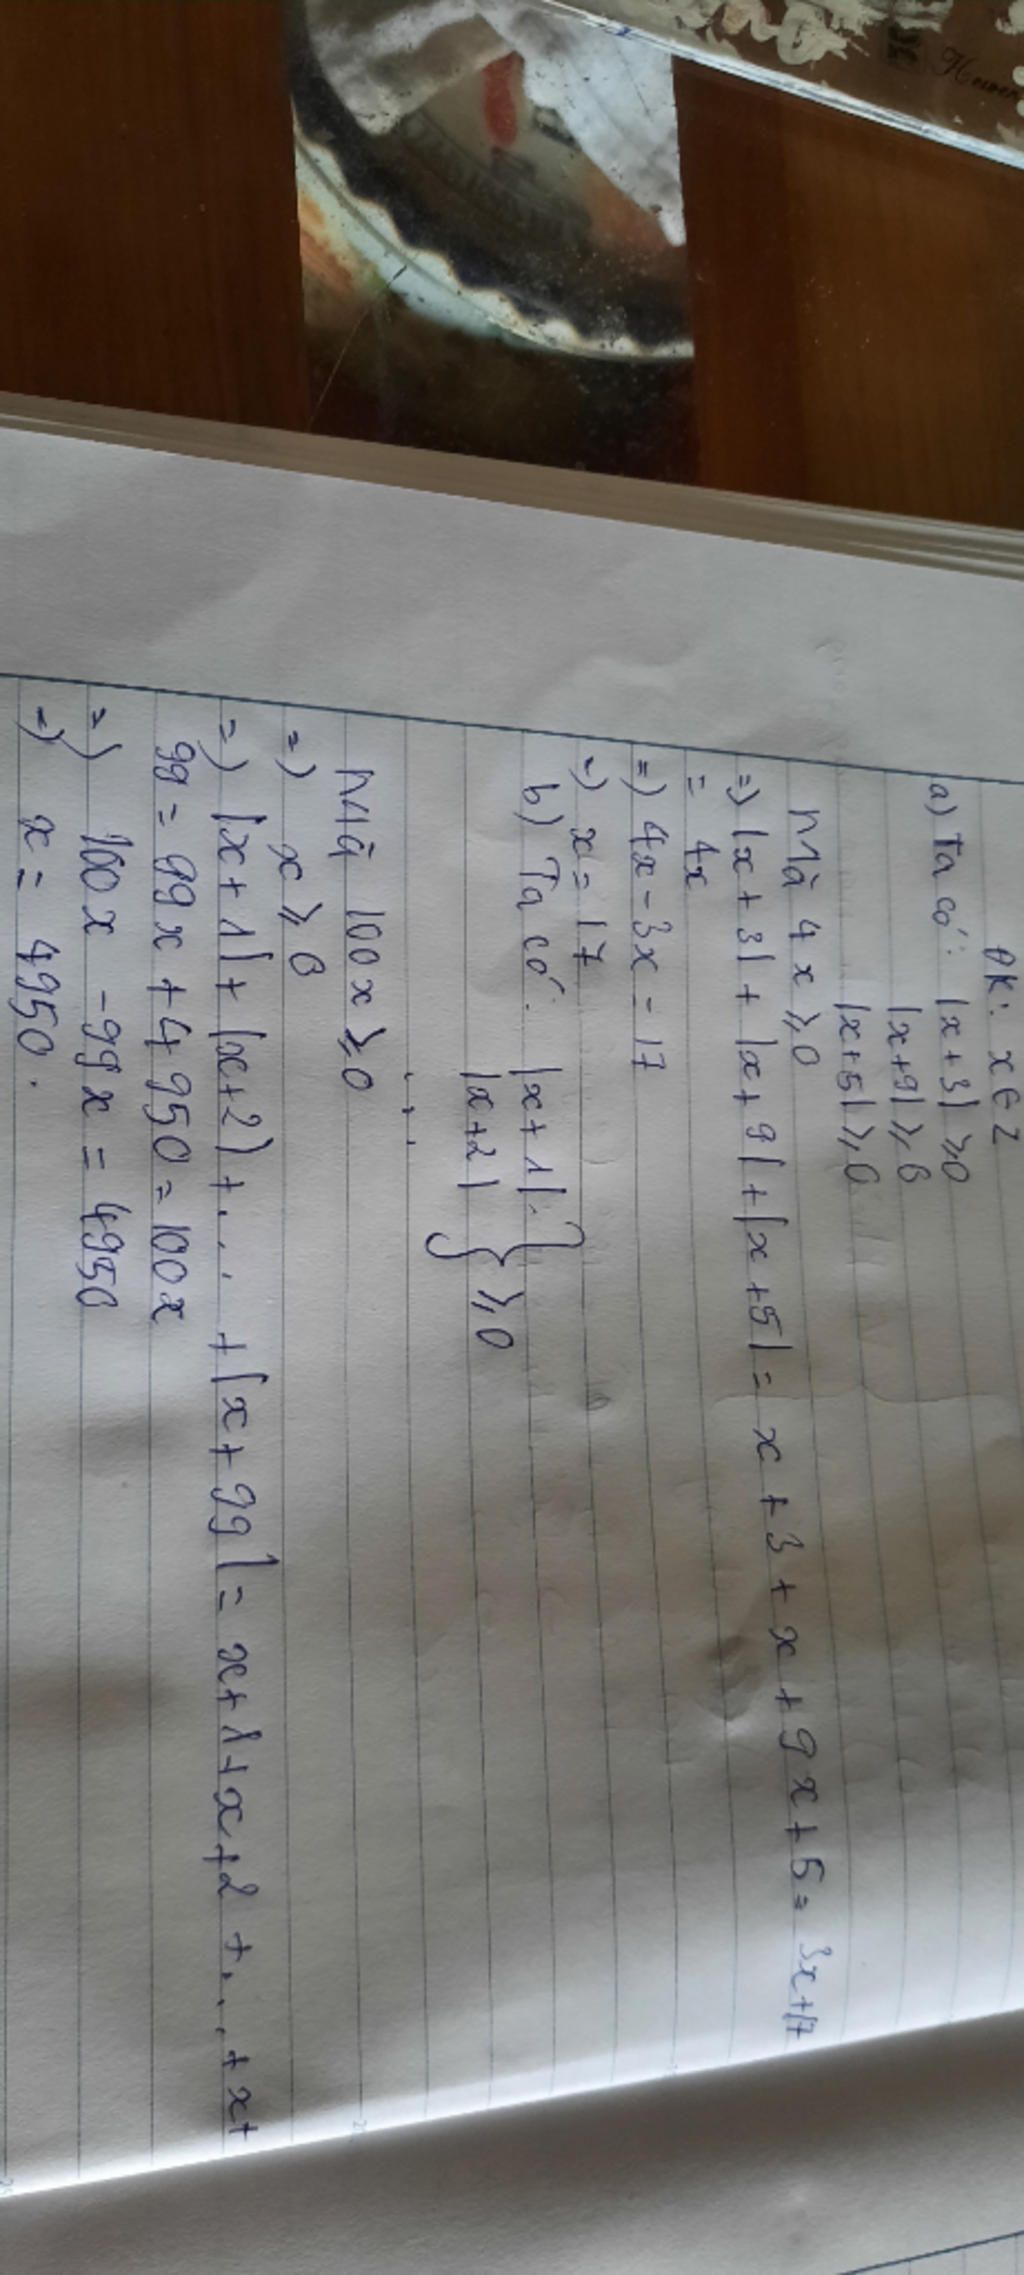 ĐK: x ∈ Z
a) Ta có: |x + 3| ≥ 0
|x + 9| ≥ 0
|x + 5| ≥ 0
Mà 4x ≥ 0
=) |x + 3| + |x + 9| + |x + 5| = x + 3 + x + 9 x + 5 = 3x + 17
= 4x
=) 4x - 3x = 17
=) x = 17
b) Ta có: |x + 1|
|x + 2| } ≥ 0
...
Mà 100x ≥ 0
=) x ≥ 0
=) |x + 1| + |x + 2) + ... + |x + 99| = x + 1 + x + 2 + ... + x +
99 = 99x + 4950 = 100x
=) 100x - 99x = 4950
=) x = 4950.